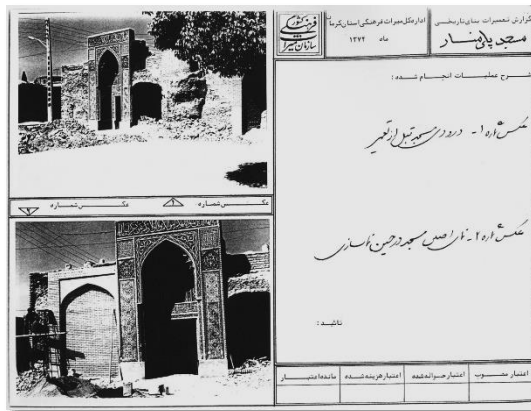 گزارش تعمیرات بنای تاریخی
مسجد پامنار
اداره کل میراث فرهنگی استان کرمان
ماه ۱۳۷۴
سازمان میراث فرهنگی کشور
شرح عملیات انجام شده:
عکس شماره ۱- درورودی مسجد قبل از تعمیر
عکس شماره ۲- نمای اصلی مسجد در حین نماسازی
تائید:
عکس شماره ۱
عکس شماره ۲
اعتبار مصوب
اعتبار حواله شده
اعتبار هزینه شده
مانده اعتبار